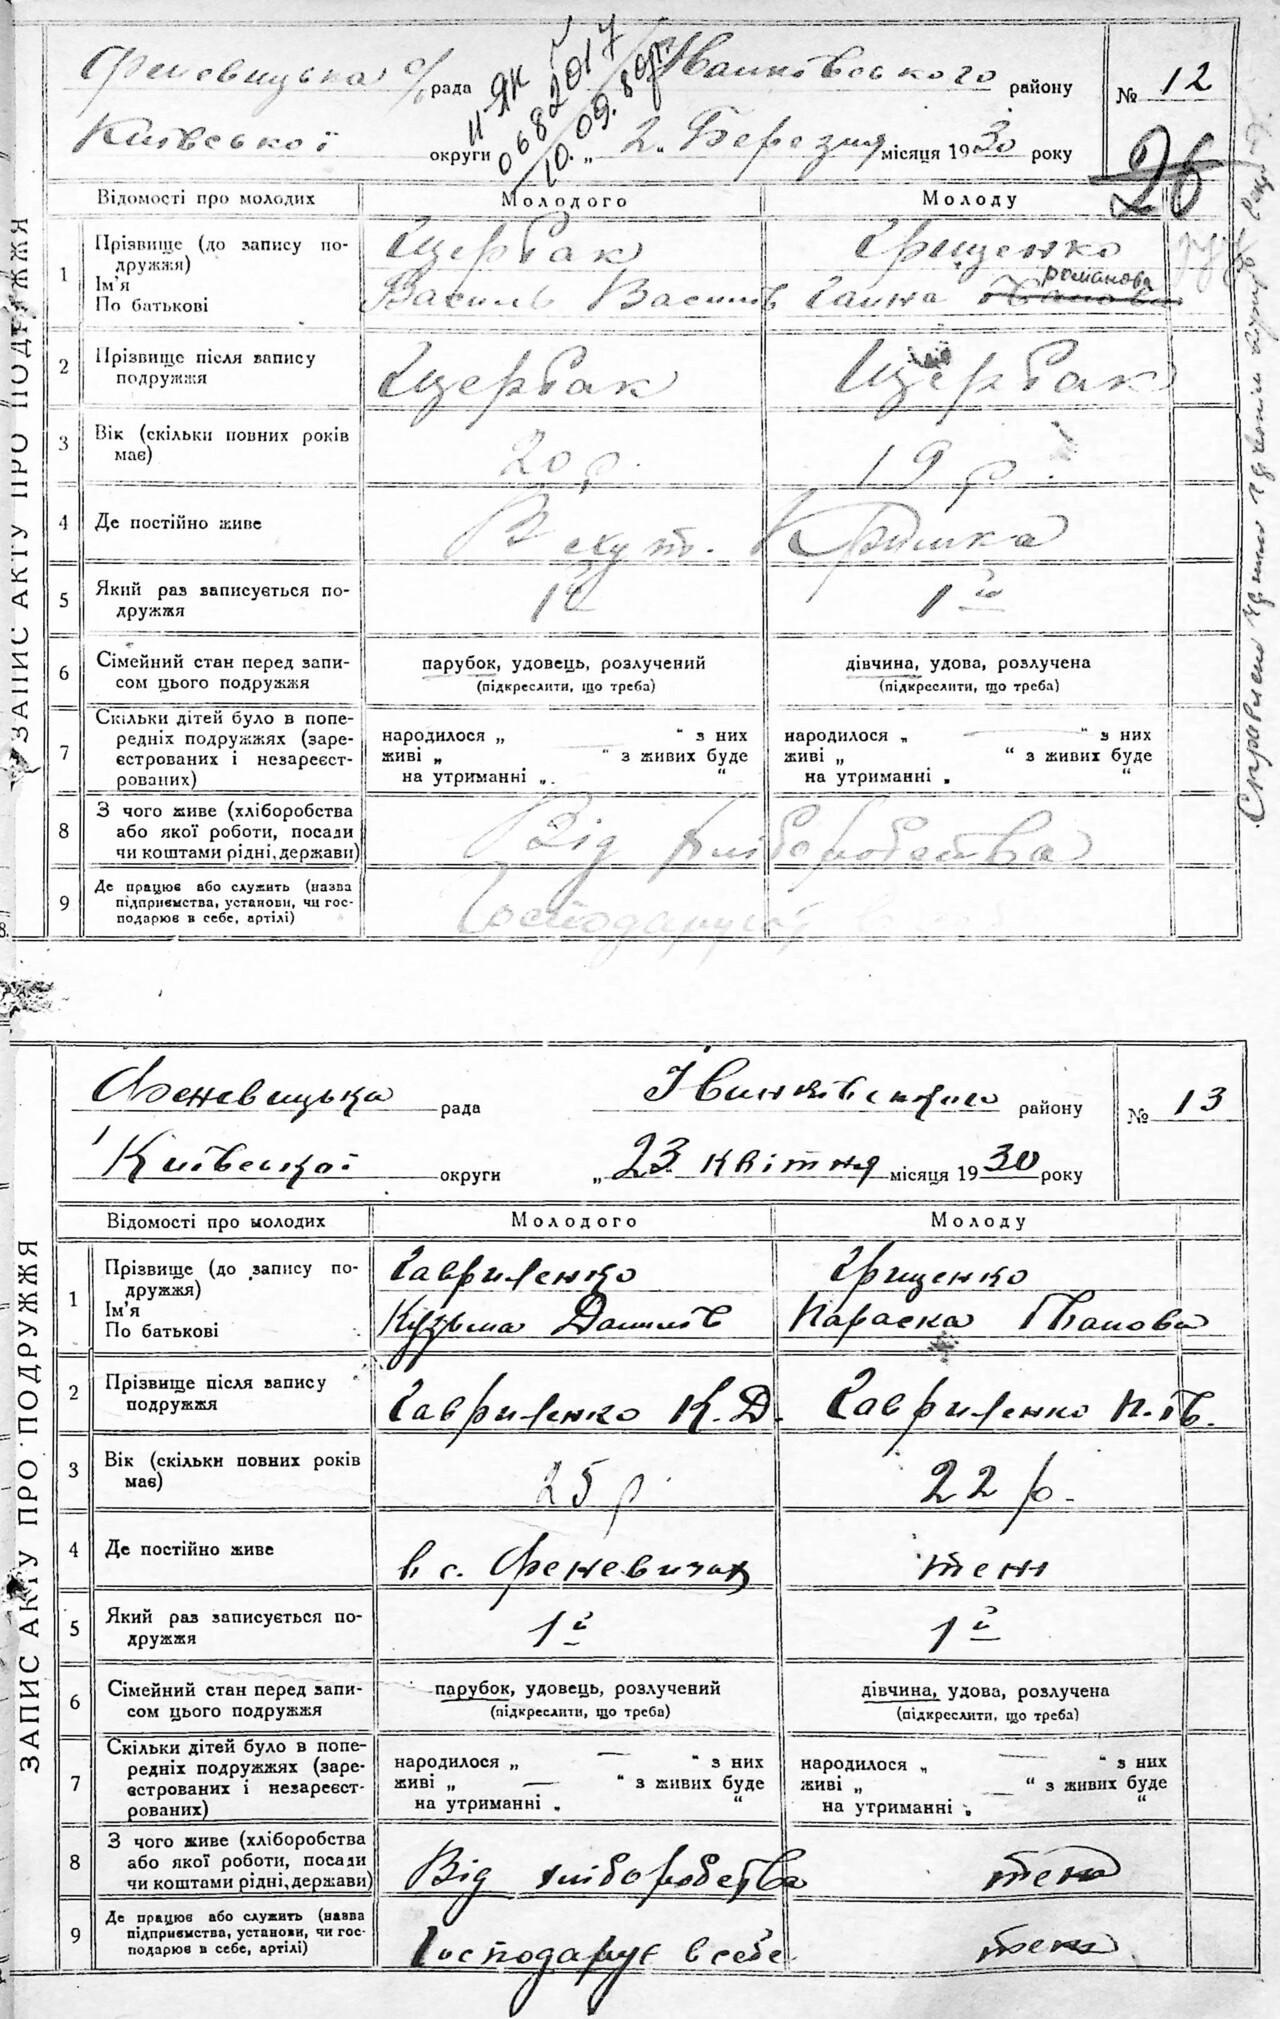 Феневицька с/рада Іванківського району № 12
Київської округи „ 2 „ Березня місяця 1930 року
ІІ-ЯК
0682017
10.09.89р.
26
ЗАПИС АКТУ ПРО ПОДРУЖЖЯ
Відомості про молодих Молодого Молоду
1 Прізвище (до запису подружжя) Щербак Грищенко
Ім'я
По батькові Василь Василів Ганна романова Іванова
2 Прізвище після запису подружжя Щербак Щербак
3 Вік (скільки повних років має) 20 р. 19 р.
4 Де постійно живе В хут.
5 Який раз записується подружжя 1й 1й
6 Сімейний стан перед записом цього подружжя парубок, удовець, розлучений дівчина, удова, розлучена
(підкреслити, що треба) (підкреслити, що треба)
7 Скільки дітей було в попередніх подружжях (зареєстрованих і незареєстрованих) народилося „ — “ з них народилося „ — “ з них
живі „ “ з живих буде живі „ “ з живих буде
на утриманні „ “ на утриманні „ “
8 З чого живе (хліборобства або якої роботи, посади чи коштами рідні, держави) Від хліборобства
9 Де працює або служить (назва підприємства, установи, чи господарює в себе, артілі) Господарують в
Феневицька рада Іванківського району № 13
Київської округи „ 23 квітня місяця 1930 року
ЗАПИС АКТУ ПРО ПОДРУЖЖЯ
Відомості про молодих Молодого Молоду
1 Прізвище (до запису подружжя) Гавриленко Грищенко
Ім'я
По батькові Кузьма Данилів Параска Іванова
2 Прізвище після запису подружжя Гавриленко К. Д. Гавриленко П. Ів.
3 Вік (скільки повних років має) 25 р 22 р.
4 Де постійно живе в с. Феневичах теж
5 Який раз записується подружжя 1й 1й
6 Сімейний стан перед записом цього подружжя парубок, удовець, розлучений дівчина, удова, розлучена
(підкреслити, що треба) (підкреслити, що треба)
7 Скільки дітей було в попередніх подружжях (зареєстрованих і незареєстрованих) народилося „ — “ з них народилося „ — “ з них
живі „ — “ з живих буде живі „ — “ з живих буде
на утриманні „ “ на утриманні „ “
8 З чого живе (хліборобства або якої роботи, посади чи коштами рідні, держави) Від хліборобства теж
9 Де працює або служить (назва підприємства, установи, чи господарює в себе, артілі) Господарує в себе теж